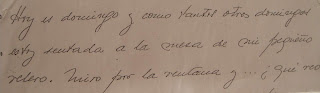 Hoy es domingo y como tantos otros domingos
estoy sentada a la mesa de mi pequeño
relevo. Miro por la ventana y... ¿Qué veo